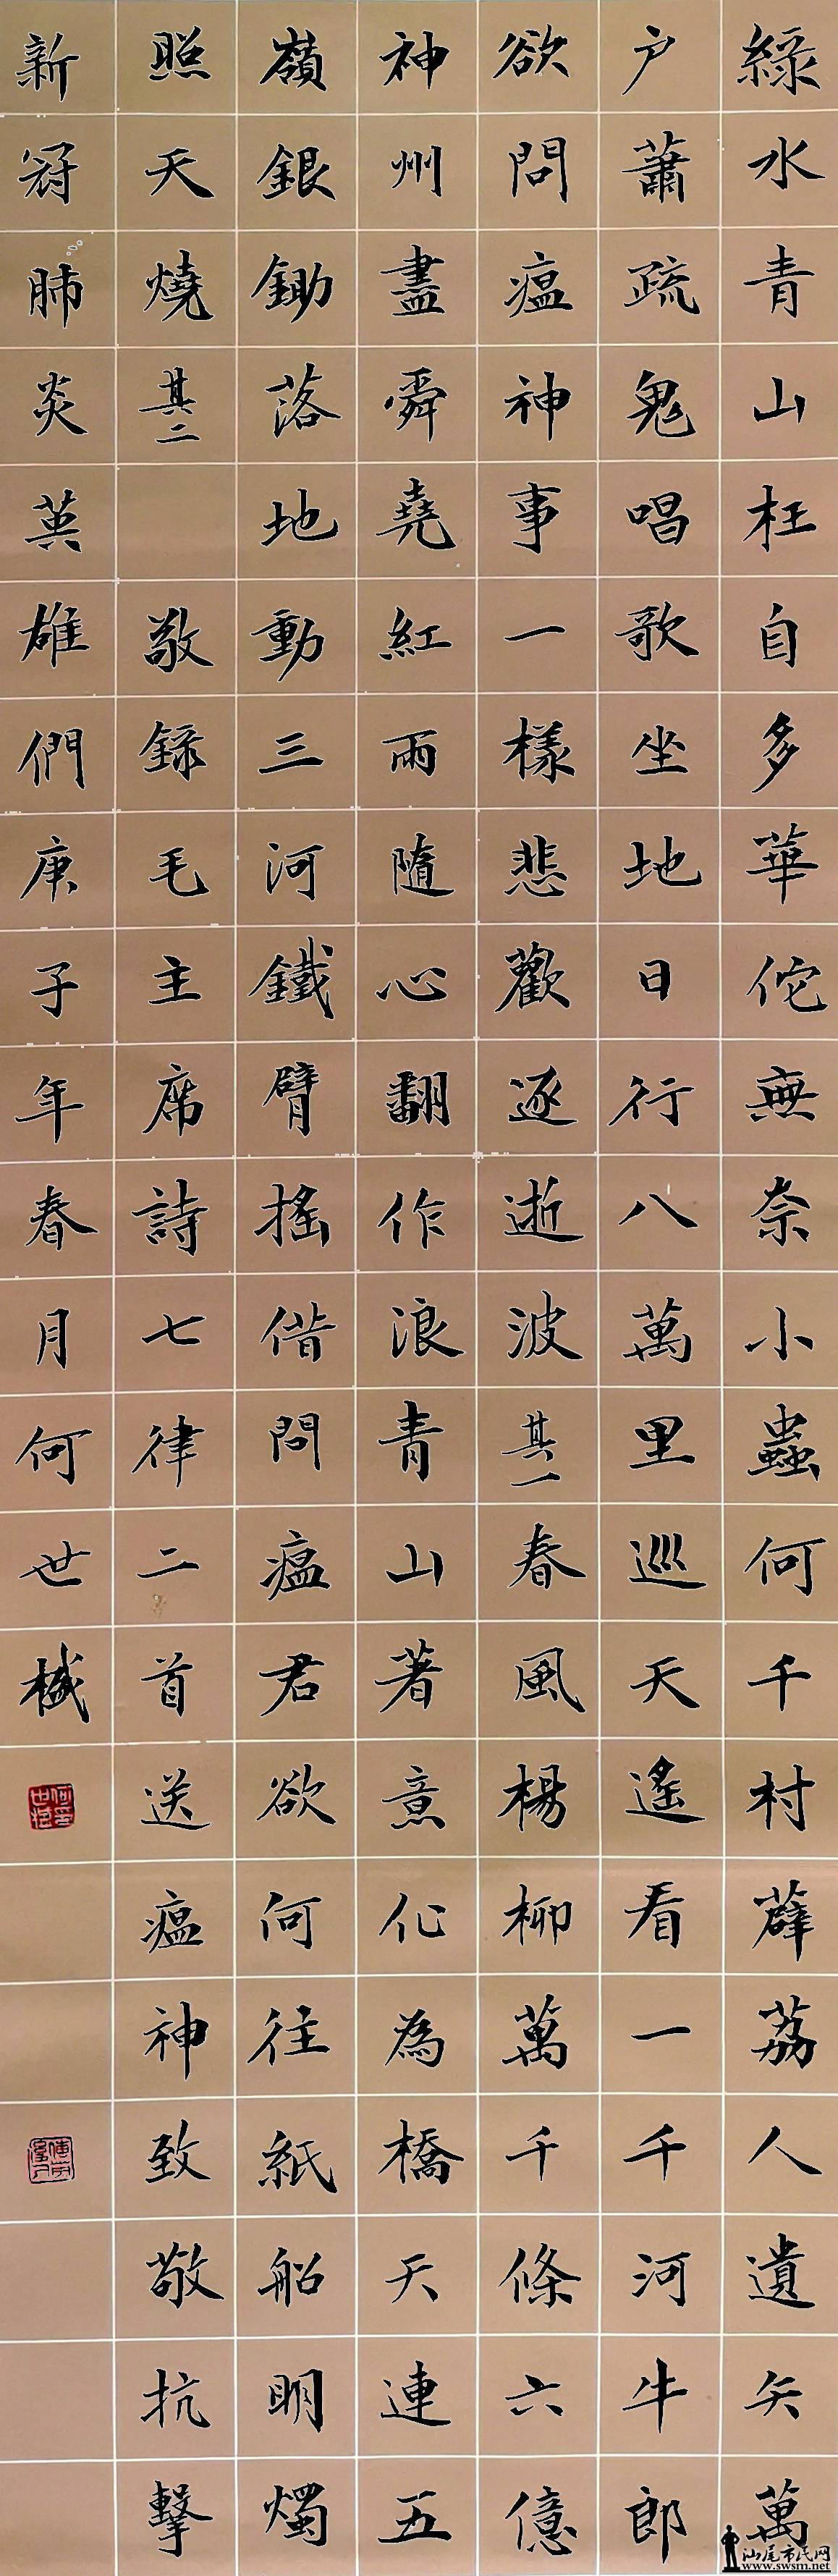 綠水青山枉自多華佗無奈小蟲何千村薜荔人遺矢萬
户蕭疏鬼唱歌坐地日行八萬里巡天遙看一千河牛郎
欲問瘟神事一樣悲歡逐逝波其一春風楊柳萬千條六億
神州盡舜堯紅雨隨心翻作浪青山著意化為橋天連五
嶺銀鋤落地動三河鐵臂搖借問瘟君欲何往紙船明燭
照天燒其二敬錄毛主席詩七律二首送瘟神致敬抗擊
新冠肺炎英雄們庚子年春月何世棫
汕尾市民网
www.swsm.net